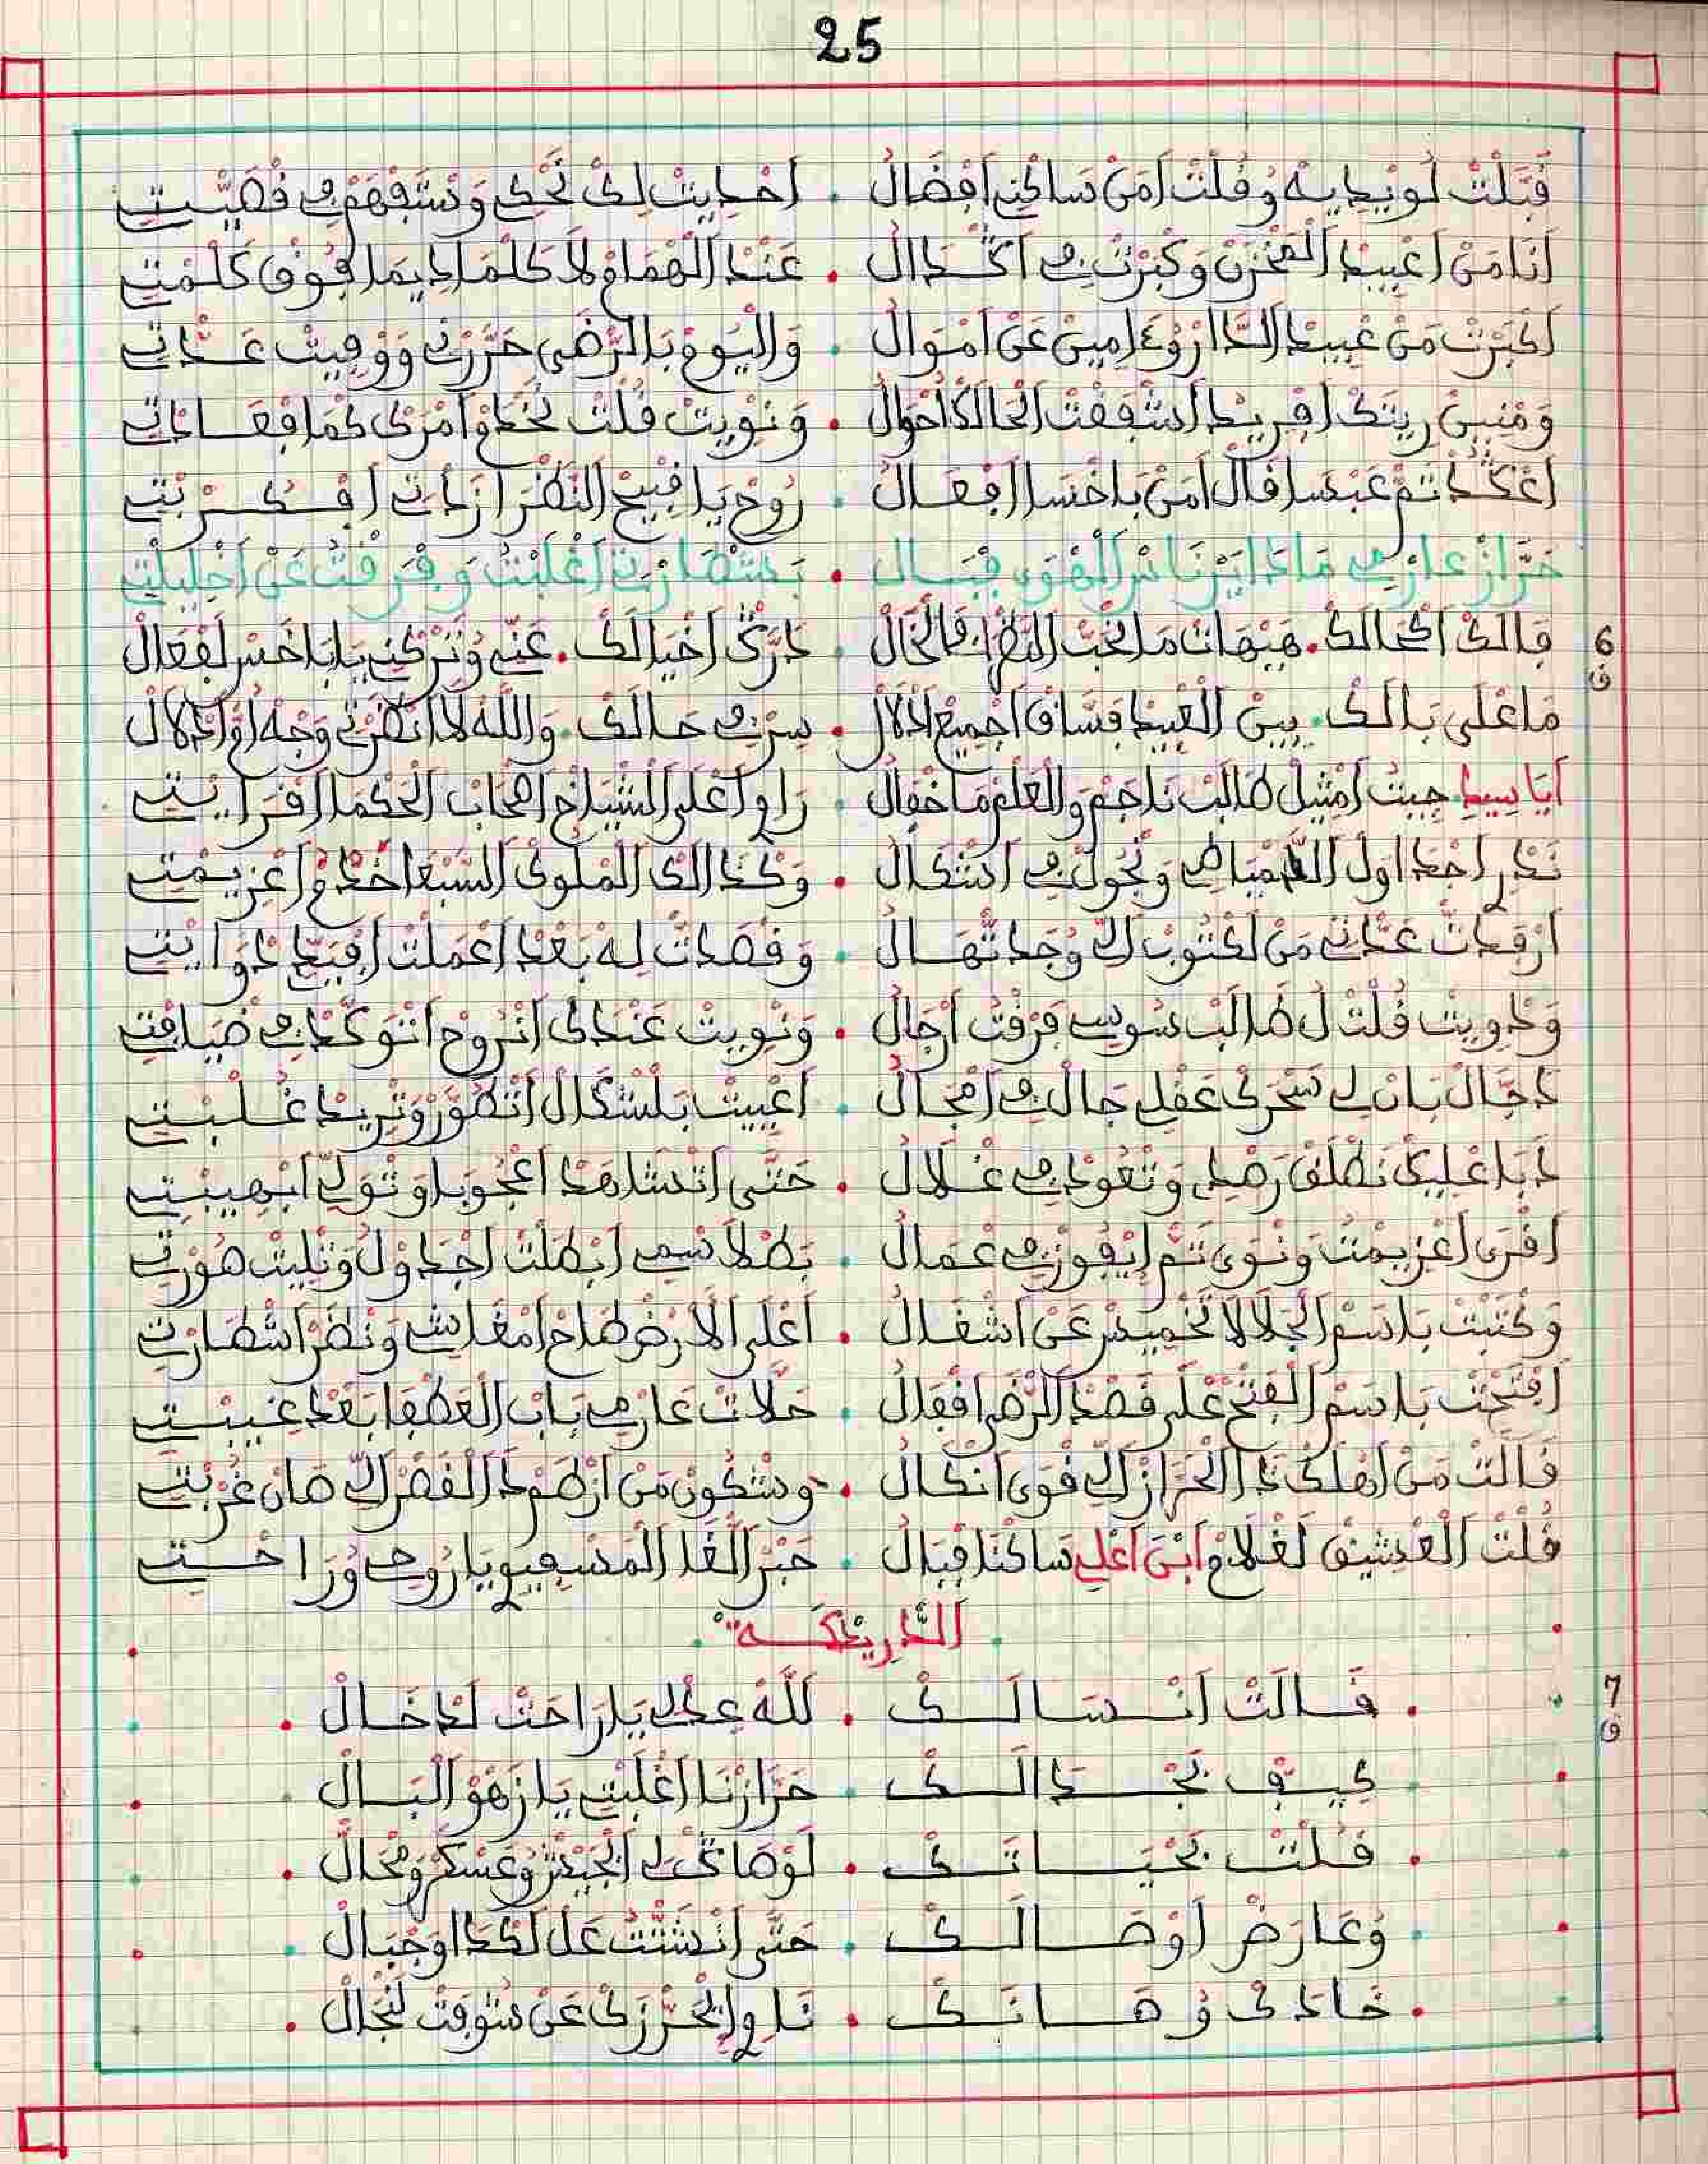 25
قَبَّلْتْ لُويدِيهْ وُقُلْتْ أَمَنْ سَاكْنِي أَفْضَالُ . أَحْدِيتْ لِكْ نَحْكِي وَتْسَفْهَمْ فِي قَصِّيتِي
أَنَا مَنْ أَعْبِيدْ الْمَخْزَنْ وَكْبَرْتْ فِي أَكْدَالُ . عَنْدْ الْهْمَامْ لَا كَلْمَا دِيمَا فُوقْ كَلْمْتِي
أَكْبَرْتْ مَنْ عْبِيدْ الدَّارْ وُأَمِينْ عَنْ أَمْوَالُ . وَالْيُومْ بَالرّْضَى حَرَّرْنِي وَوْفِيتْ عَدَّاتِي
وَمْنِينْ رِيتَكْ أَفْرِيدْ أَشْفَقْتْ الْحَالَكْ أَحْوَالُ . وَنْوِيتْ قُلْتْ نَخْدَمْ أَمْرَكْ كْمَا أَفْعَادَاتِي
أَعْكَدْ تَمّْ عَبْسَا قَالْ أَمَنْ بَاخْسَا أَفْعَالُ . رُوحْ يَا قْبِيحْ النَّظْرَا زَدْتِي أَفْكَرْبْتِي
حَرَّازْ عَارْمِي مَادَا بَرْنَاسْ الْهْوَى قْبَالِ . بَشْطَارْتِي أَغْلَبْتُ وَفْرَقْتُ عَنْ أَخْلِيلْتِي
6
ق
قَالَكْ أَكْحَالَكْ . هَيْهَاتْ مَا نْحَبّْ النَّظْرَا فَالْخَالْ . دَرَّكْ أَخْيَالَكْ . عَنِّي وُتَرْكْنِي يَا بَاخَسْ لَفْعَالْ
مَا عْلَى بَالَكْ . بِينْ الْعْبِيدْ فَسَّاقْ أَجْمِيعْ أَدْلَالْ . سِرْ فِي حَالَكْ . وَاللَّهْ لَا أَنْظَرْتِي وَجْهْ أَمّْ أَدْلَالْ
أَيَا سِيدِي جِيتْ أَمْثِيلْ طَالَبْ نَاجَمْ وَالْعَلْمْ مَا خْفَالُ . رَاوِي أَعْلَى الْشْيَاخْ أَصْحَابْ الْحَكْمَا أَقْرَايْتِي
نَدْرِي أَجْدَاوَلْ الدَّمْيَاطِي وَنْجُولْ فِي أَشْكَالُ . وَكْدَالَكْ الْمْلُوكْ السَّبْعَا خَدَّامْ أَعْزِيمْتِي
أَرْفَدْتْ عَدَّاتِي مَنْ لَكْتُوبْ الِّي وُجَدْتْهَالُ . وَقْصَدْتْ لِهْ بَعْدْ أَعْمَلْتْ أَفْيَدِّي دْوَايْتِي
وَدْوِيتْ قُلْتْ لُ طَالَبْ سُوسِي فَرْقْتُ أَرْجَالُ . وَنْوِيتْ عَنْدَكْ أَنْرُوحْ أَنْتَوَكَّدْ فِي ضْيَافْتِي
دَجَّالْ بَانْ لِي سَحْرَكْ عَقْلِي جَالْ فِي أَمْجَالُ . أَعْيِيتْ بَلْشْكَالْ أَتْطَوَّرْ وَتْرِيدْ غُلْبْتِي
دَابَا عْلِيكْ نَطْلَقْ رَصْدِي وَتْعُودْ فِي غْلَالُ . حَتَّى أَتْشَاهَدْ أَعْجُوبَا وَتْوَلِّي أَبْهِيبْتِي
أَقْرَى أَعْزِيمْتُ وَنْوَى تَمّْ إِيفُوزْ فِي عْمَالُ . بَطْلَاسْمِي أَبْطَلْتْ أَجْدَاوْلُ وَتْلِيتْ هُورْتِي
وَكْتَبْتْ بَاسَمْ الْجَلَالَا تَخْمِيسْ عَنْ أَشْغَالُ . أَعْلَى الْأَرْضْ طَاحْ أَمْغَاشِي وَنْظَرْ أَشْطَارْتِي
أَفْتَحْتْ بَاسَمْ الْفَتْحْ عْلَى قَصْدْ الرّْضَى أَقْفَالُ . حَلَّاتْ عَارْمِي بَابْ الْعَطْفَا بَعْدْ غِيبْتِي
قَالَتْ مَنْ أَهْلَكْ دَا الْحَرَّازْ الِّي قْوَى أَنْكَالُ . وِشْكُونْ مَنْ أَزْطَمْ دَا الْقَصْرْ الِّي صَانْ غُرْبْتِي
قُلْتْ الْعْشِيقْ لَغْلَامْ أَبْنْ أَعْلِي سَاكْنَا قْبَالُ . حَبْرْ الْغَا الْمَسْفِيوِي يَا رُوحِي وُرَاحْتِي
الدَّرِيدْكَة
7
ق
. قَالَتْ أَنْسَالَكْ . لَلَّهْ عِدْ لِي يَا رَاحَتْ لَدْخَالْ .
كِيفْ نَجْدَالَكْ . حَرَّازْنَا أَغْلَبْتِي يَا زَهْوْ الْبَالْ
. قُلْتْ بَحْيَاتَكْ . لَوْصَاتَكْ لِي الْجَيْشْ وُعَسْكَرْ وَمْحَالْ .
وُعَارَضْ أَوْصَالَكْ . حَتَّى أَنْشَتّْتُ عَلْ لَكْدَا وَجْبَالْ
. خَادَكْ وُهَانَكْ . نَاوِي إِيحَرّْزَكْ عَنْ شُوفَتْ لَنْجَالْ .